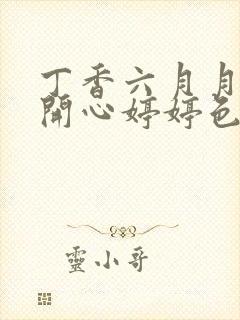 丁香六月月
開心婷婷色
靈小哥